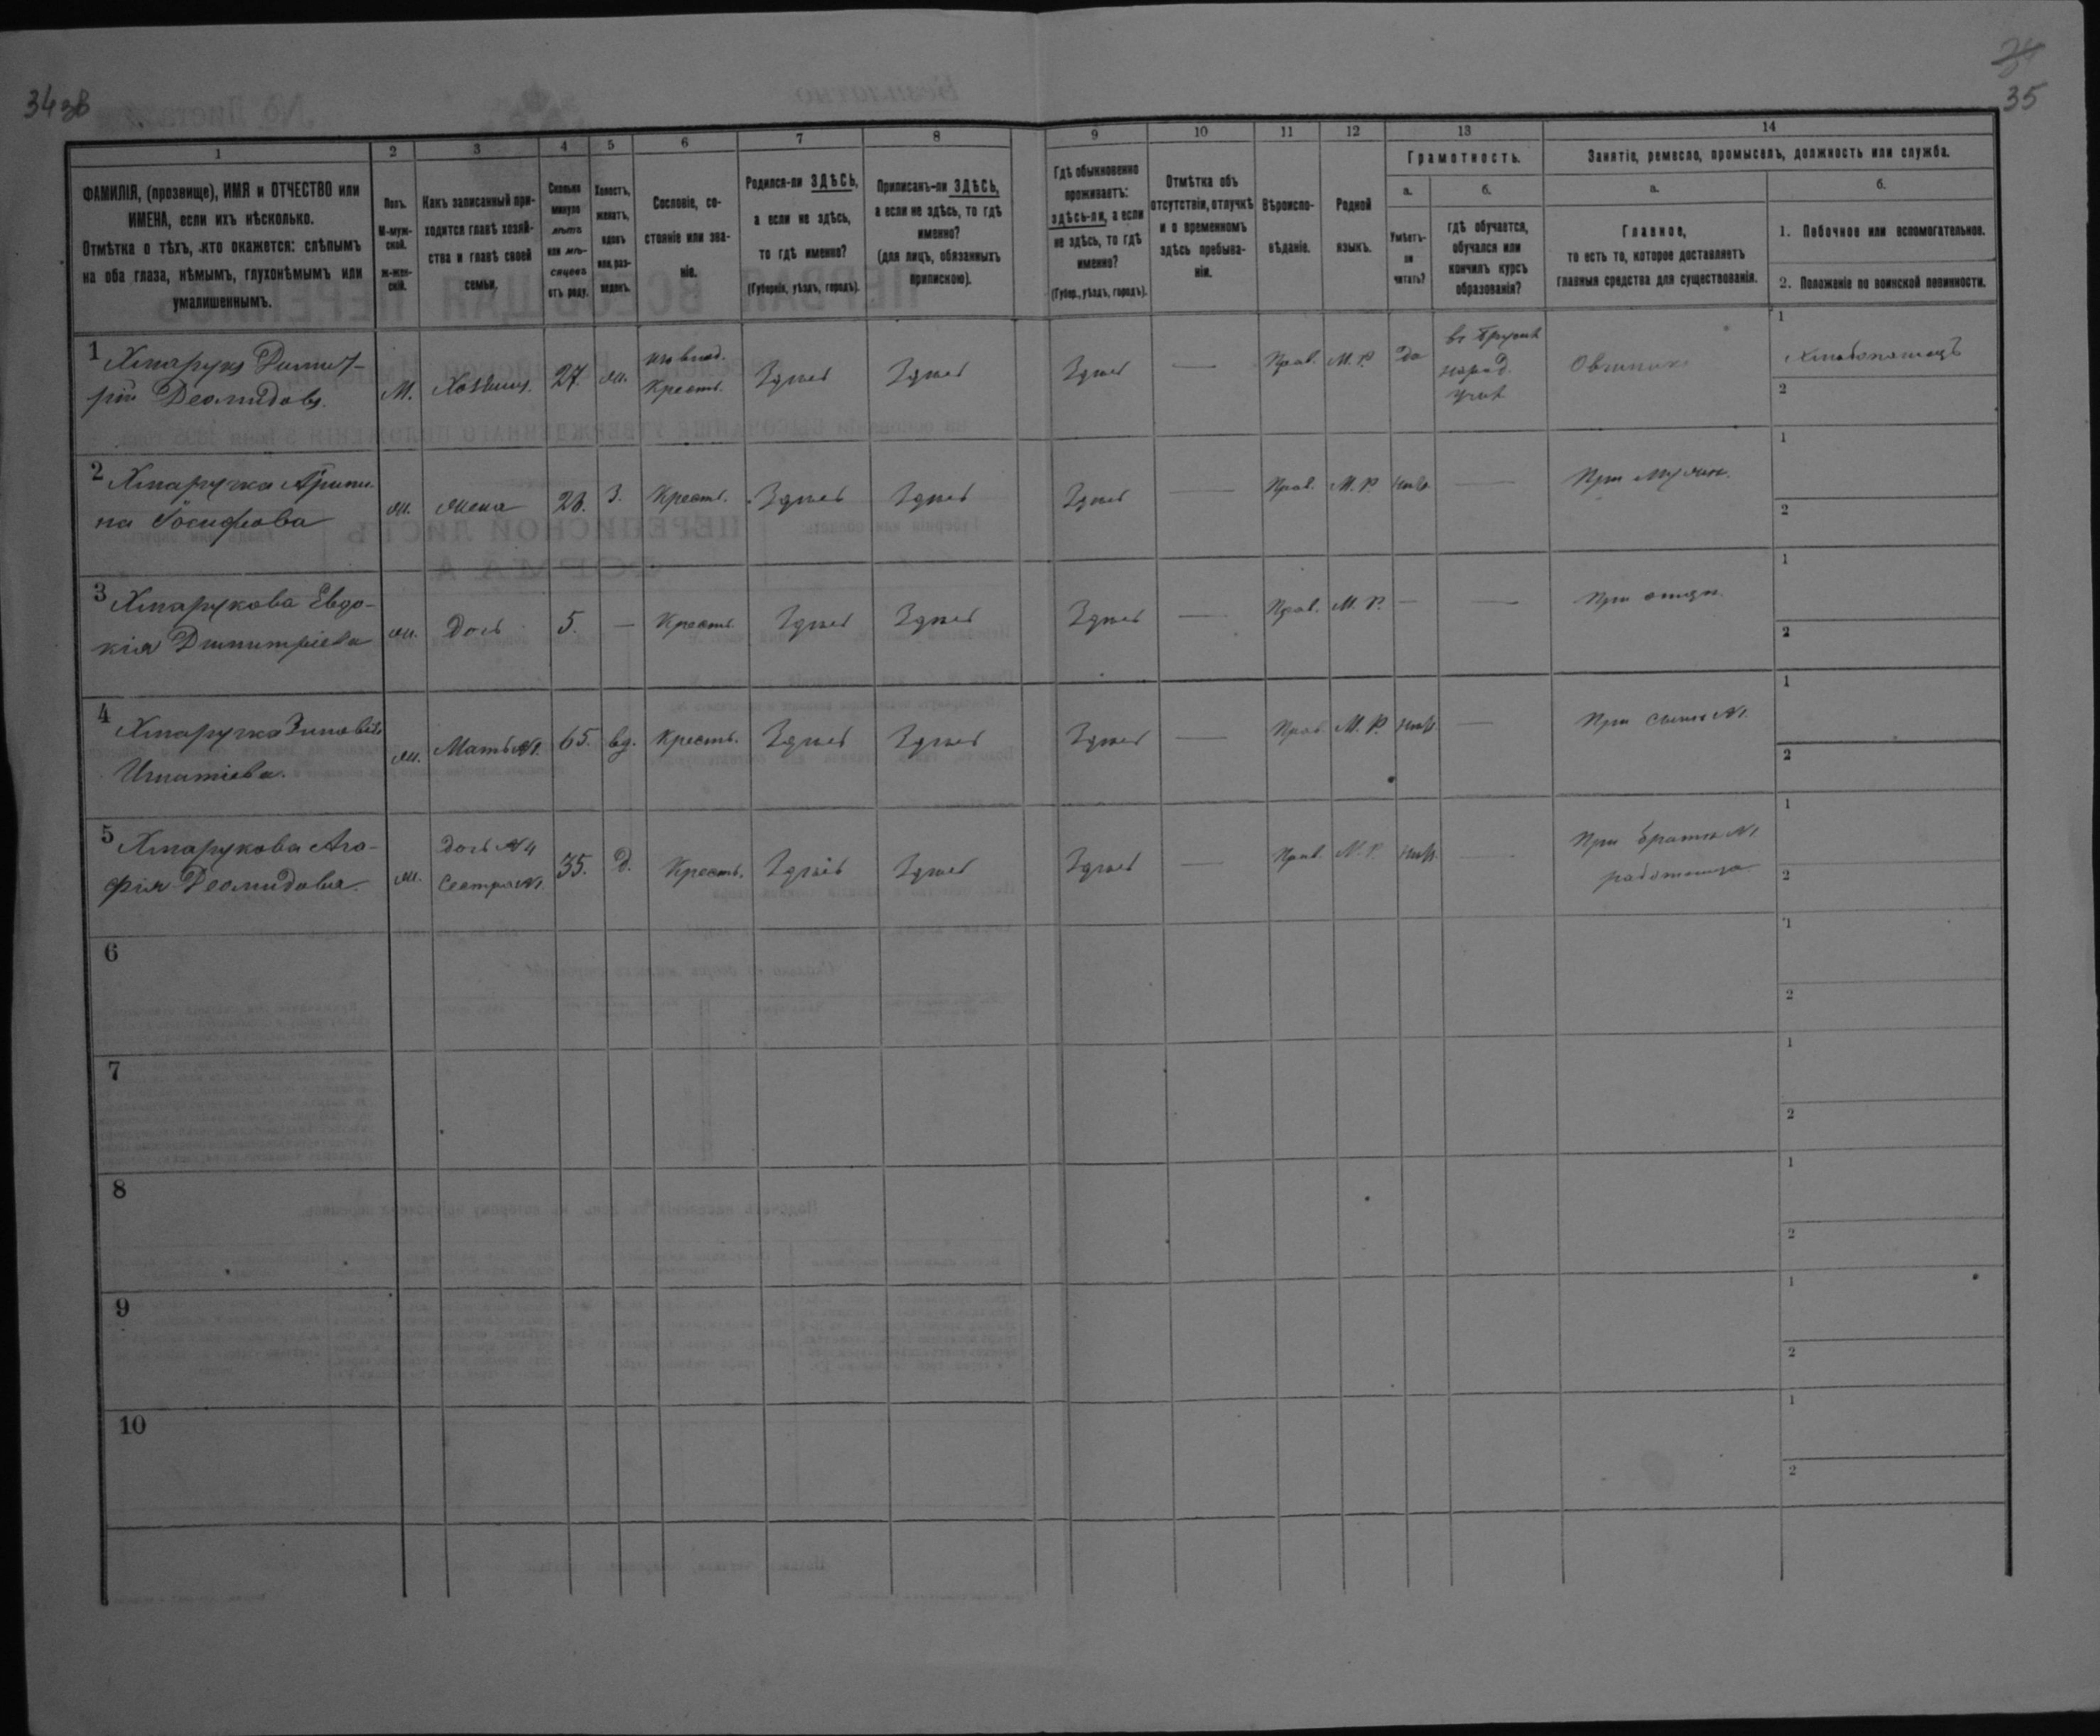 34 зв
34
35
1 2 3 4 5 6 7 8 9 10 11 12 13 14
ФАМИЛІЯ, (прозвище), ИМЯ и ОТЧЕСТВО или
ИМЕНА, если ихъ нѣсколько.
Отмѣтка о тѣхъ, кто окажется: слѣпымъ
на оба глаза, нѣмымъ, глухонѣмымъ или
умалишеннымъ.
Полъ.
М-муж-
ской.
ж-жен-
скій.
Какъ записанный при-
ходится главѣ хозяй-
ства и главѣ своей
семьи.
Сколько
минуло
лѣтъ
или мѣ-
сяцевъ
отъ роду.
Холостъ,
женатъ,
вдовъ
или раз-
веденъ.
Сословіе, со-
стояніе или зва-
ніе.
Родился-ли ЗДѢСЬ,
а если не здѣсь,
то гдѣ именно?
(Губернія, уѣздъ, городъ).
Приписанъ-ли ЗДѢСЬ,
а если не здѣсь, то гдѣ
именно?
(для лицъ, обязанныхъ
припискою).
Гдѣ обыкновенно
проживаетъ:
здѣсь-ли, а если
не здѣсь, то гдѣ
именно?
(Губер., уѣздъ, городъ).
Отмѣтка объ
отсутствіи, отлучкѣ
и о временномъ
здѣсь пребыва-
ніи.
Вѣроиспо-
вѣданіе.
Родной
языкъ.
Грамотность.
а.
Умѣетъ-
ли
читать?
б.
гдѣ обучается,
обучался или
кончилъ курсъ
образованія?
Занятіе, ремесло, промыселъ, должность или служба.
а.
Главное,
то есть то, которое доставляетъ
главныя средства для существованія.
б.
1. Побочное или вспомогательное.
2. Положеніе по воинской повинности.
1 Хмарукъ Димит-
рій Деомидовъ.
М. Хозяинъ. 27. ж. Крестъ. Здѣсь Здѣсь Здѣсь — Прав. М. Р. Да
народ.
учил.
1
2
2 Хмаручка Агрипи-
на Іосифова
ж. жена 28. З. Крестъ. Здѣсь Здѣсь Здѣсь — Прав. М. Р. — При мужѣ.
1
2
3 Хмарукова Евдо-
кія Димитріева
ж. Дочь 5. — Крестъ. Здѣсь Здѣсь Здѣсь — Прав. М. Р. — — При отцѣ.
1
2
4 Хмаручка Зиновія
Игнатіева.
ж. Мать №1. 65. вд. Крестъ. Здѣсь Здѣсь Здѣсь — Прав. М. Р. — При сынѣ №1.
1
2
5 Хмарукова Ага-
фія Деомидова.
Дочь №4
ж. Сестра №1. 35. Д. Крестъ. Здѣсь Здѣсь Здѣсь — Прав. М. Р. — При братѣ №1
работница
1
2
6
1
2
7
1
2
8
1
2
9
1
2
10
1
2